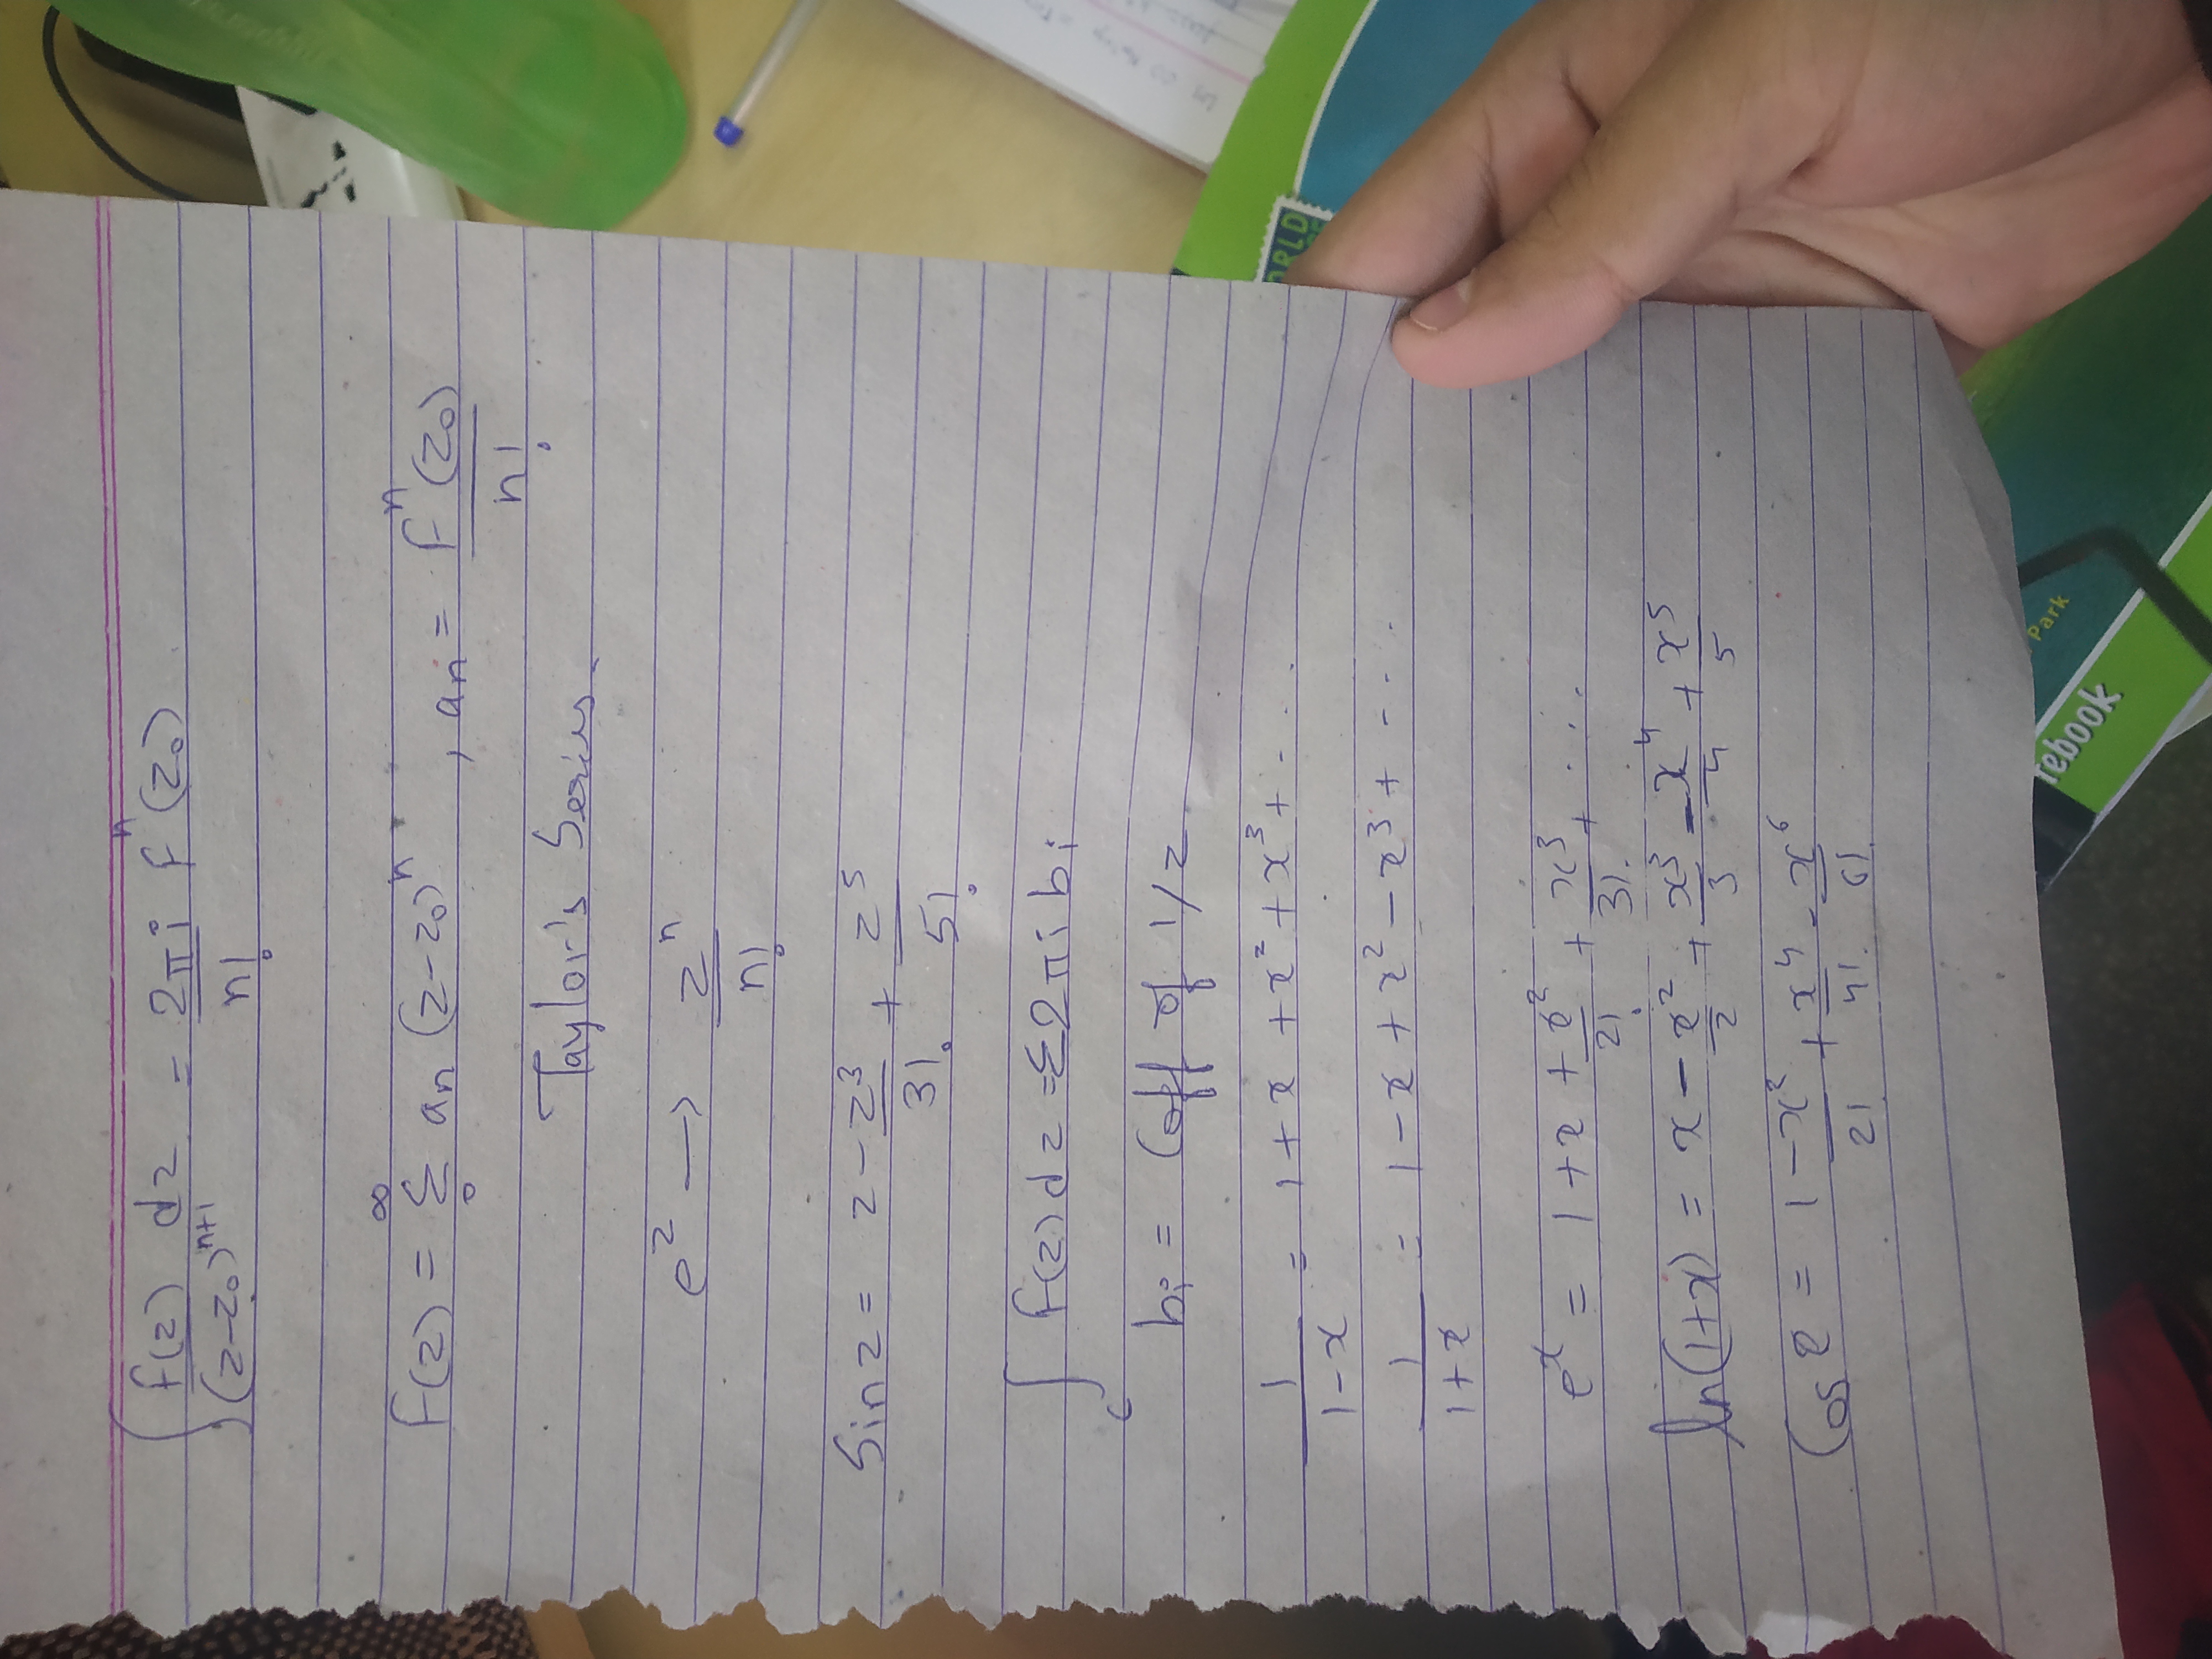 ∫ f(z) dz / (z-z₀)ⁿ⁺¹ = 2πi / n! fⁿ(z₀)
f(z) = ∞ Σ 0 aₙ (z-z₀)ⁿ , aₙ = fⁿ(z₀) / n!
Taylor's Series.
eᶻ → zⁿ / n!
Sin z = z - z³/3! + z⁵/5!
∫c f(z) dz = Σ 2πi bᵢ
bᵢ = Coff of 1/z
1/(1-x) = 1 + x + x² + x³ + ...
1/(1+x) = 1 - x + x² - x³ + ...
eˣ = 1 + x + x²/2! + x³/3! + ...
ln(1+x) = x - x²/2 + x³/3 - x⁴/4 + x⁵/5
Cos x = 1 - x²/2! + x⁴/4! - x⁶/6!
ORLD
Park
rebook